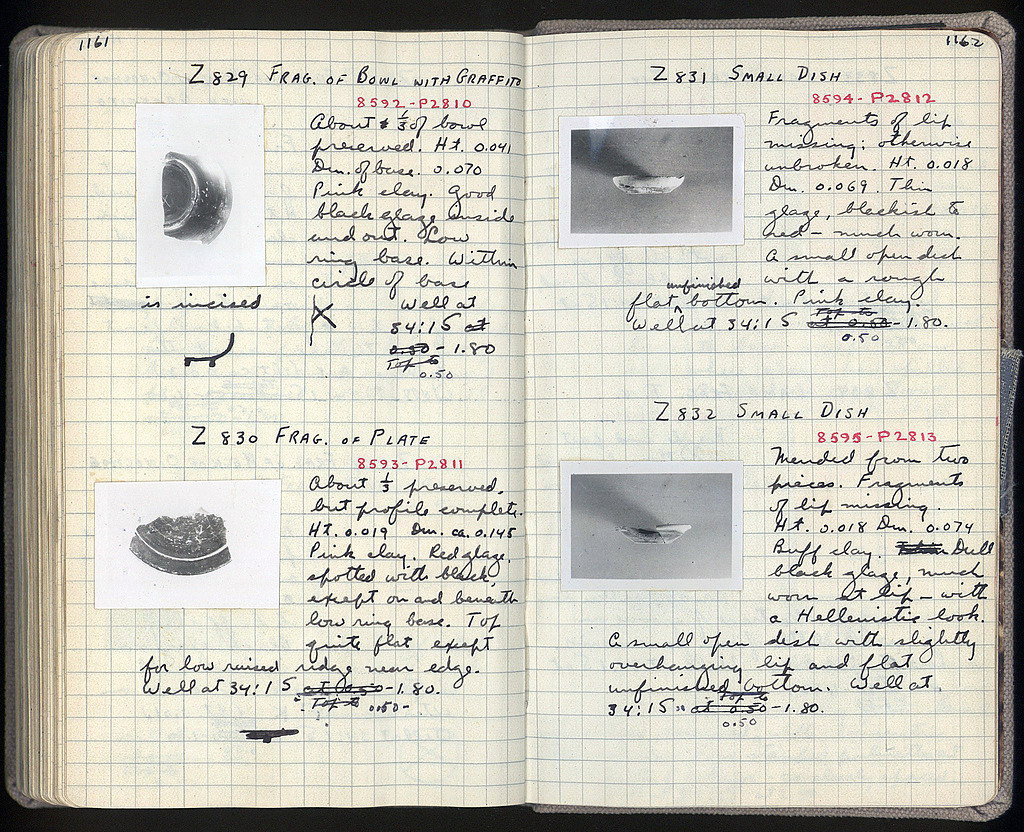 1161
Z 829 FRAG. OF BOWL WITH GRAFFITO
8592-P2810
About 1/3 of bowl
preserved. Ht. 0.041
Dm. of base. 0.070
Pink clay. Good
black glaze inside
and out. Low
ring base. Within
circle of base
is incised X Well at
34:15 at
0.50 - 1.80
Top to
0.50
Z 830 FRAG. OF PLATE
8593-P2811
About 1/3 preserved,
but profile complete.
Ht. 0.019 Dm. ca. 0.145
Pink clay. Red glaze,
spotted with black,
except on and beneath
low ring base. Top
quite flat except
for low raised ridge near edge.
Well at 34:15 at 0.50-1.80.
Top to 0.50-
1162
Z 831 SMALL DISH
8594-P2812
Fragments of lip
missing; otherwise
unbroken. Ht. 0.018
Dm. 0.069. Thin
glaze, blackish to
red - much worn.
A small open dish
with a rough
unfinished
flat ^ bottom. Pink clay.
Top to
Well at 34:15 at 0.50-1.80.
0.50
Z 832 SMALL DISH
8595-P2813
Mended from two
pieces. Fragments
of lip missing.
Ht. 0.018 Dm. 0.074
Buff clay. Dull
black glaze, much
worn at lip - with
a Hellenistic look.
A small open dish with slightly
overhanging lip and flat
unfinished bottom. Well at
Top to
34:15 at 0.50-1.80.
0.50